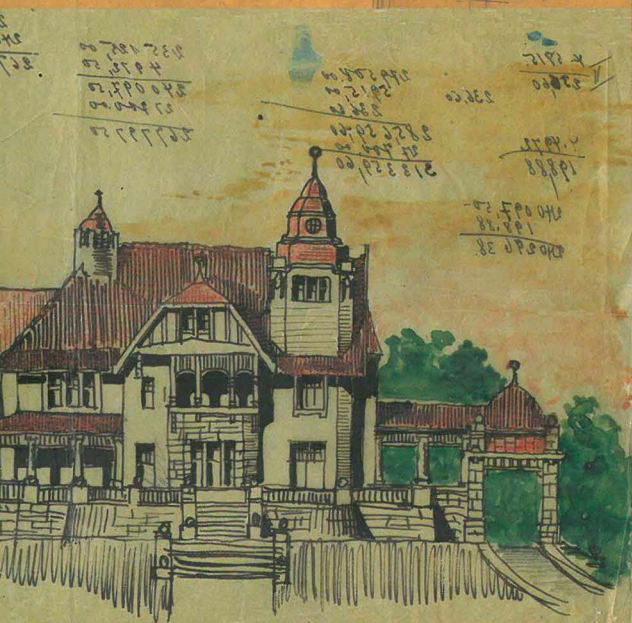 235 125,00
4 972,50
240 097,50
27 700 00
267 797 50
279 508,00
5915,00
236 60
285 659,60
27 700,00
313 359,60
236,60
4. 5915
23660
4. 4972
19888
240 097,50
198,88
240 296 38